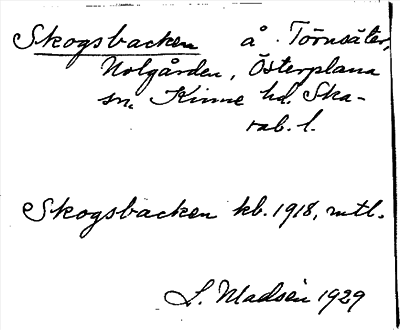 Skogsbacken å Törnsäter,
Nolgården, Österplana
sn. Kinne hd. Ska-
rab. l.
Skogsbacken kb. 1918, mtl.
L. Madsén 1929